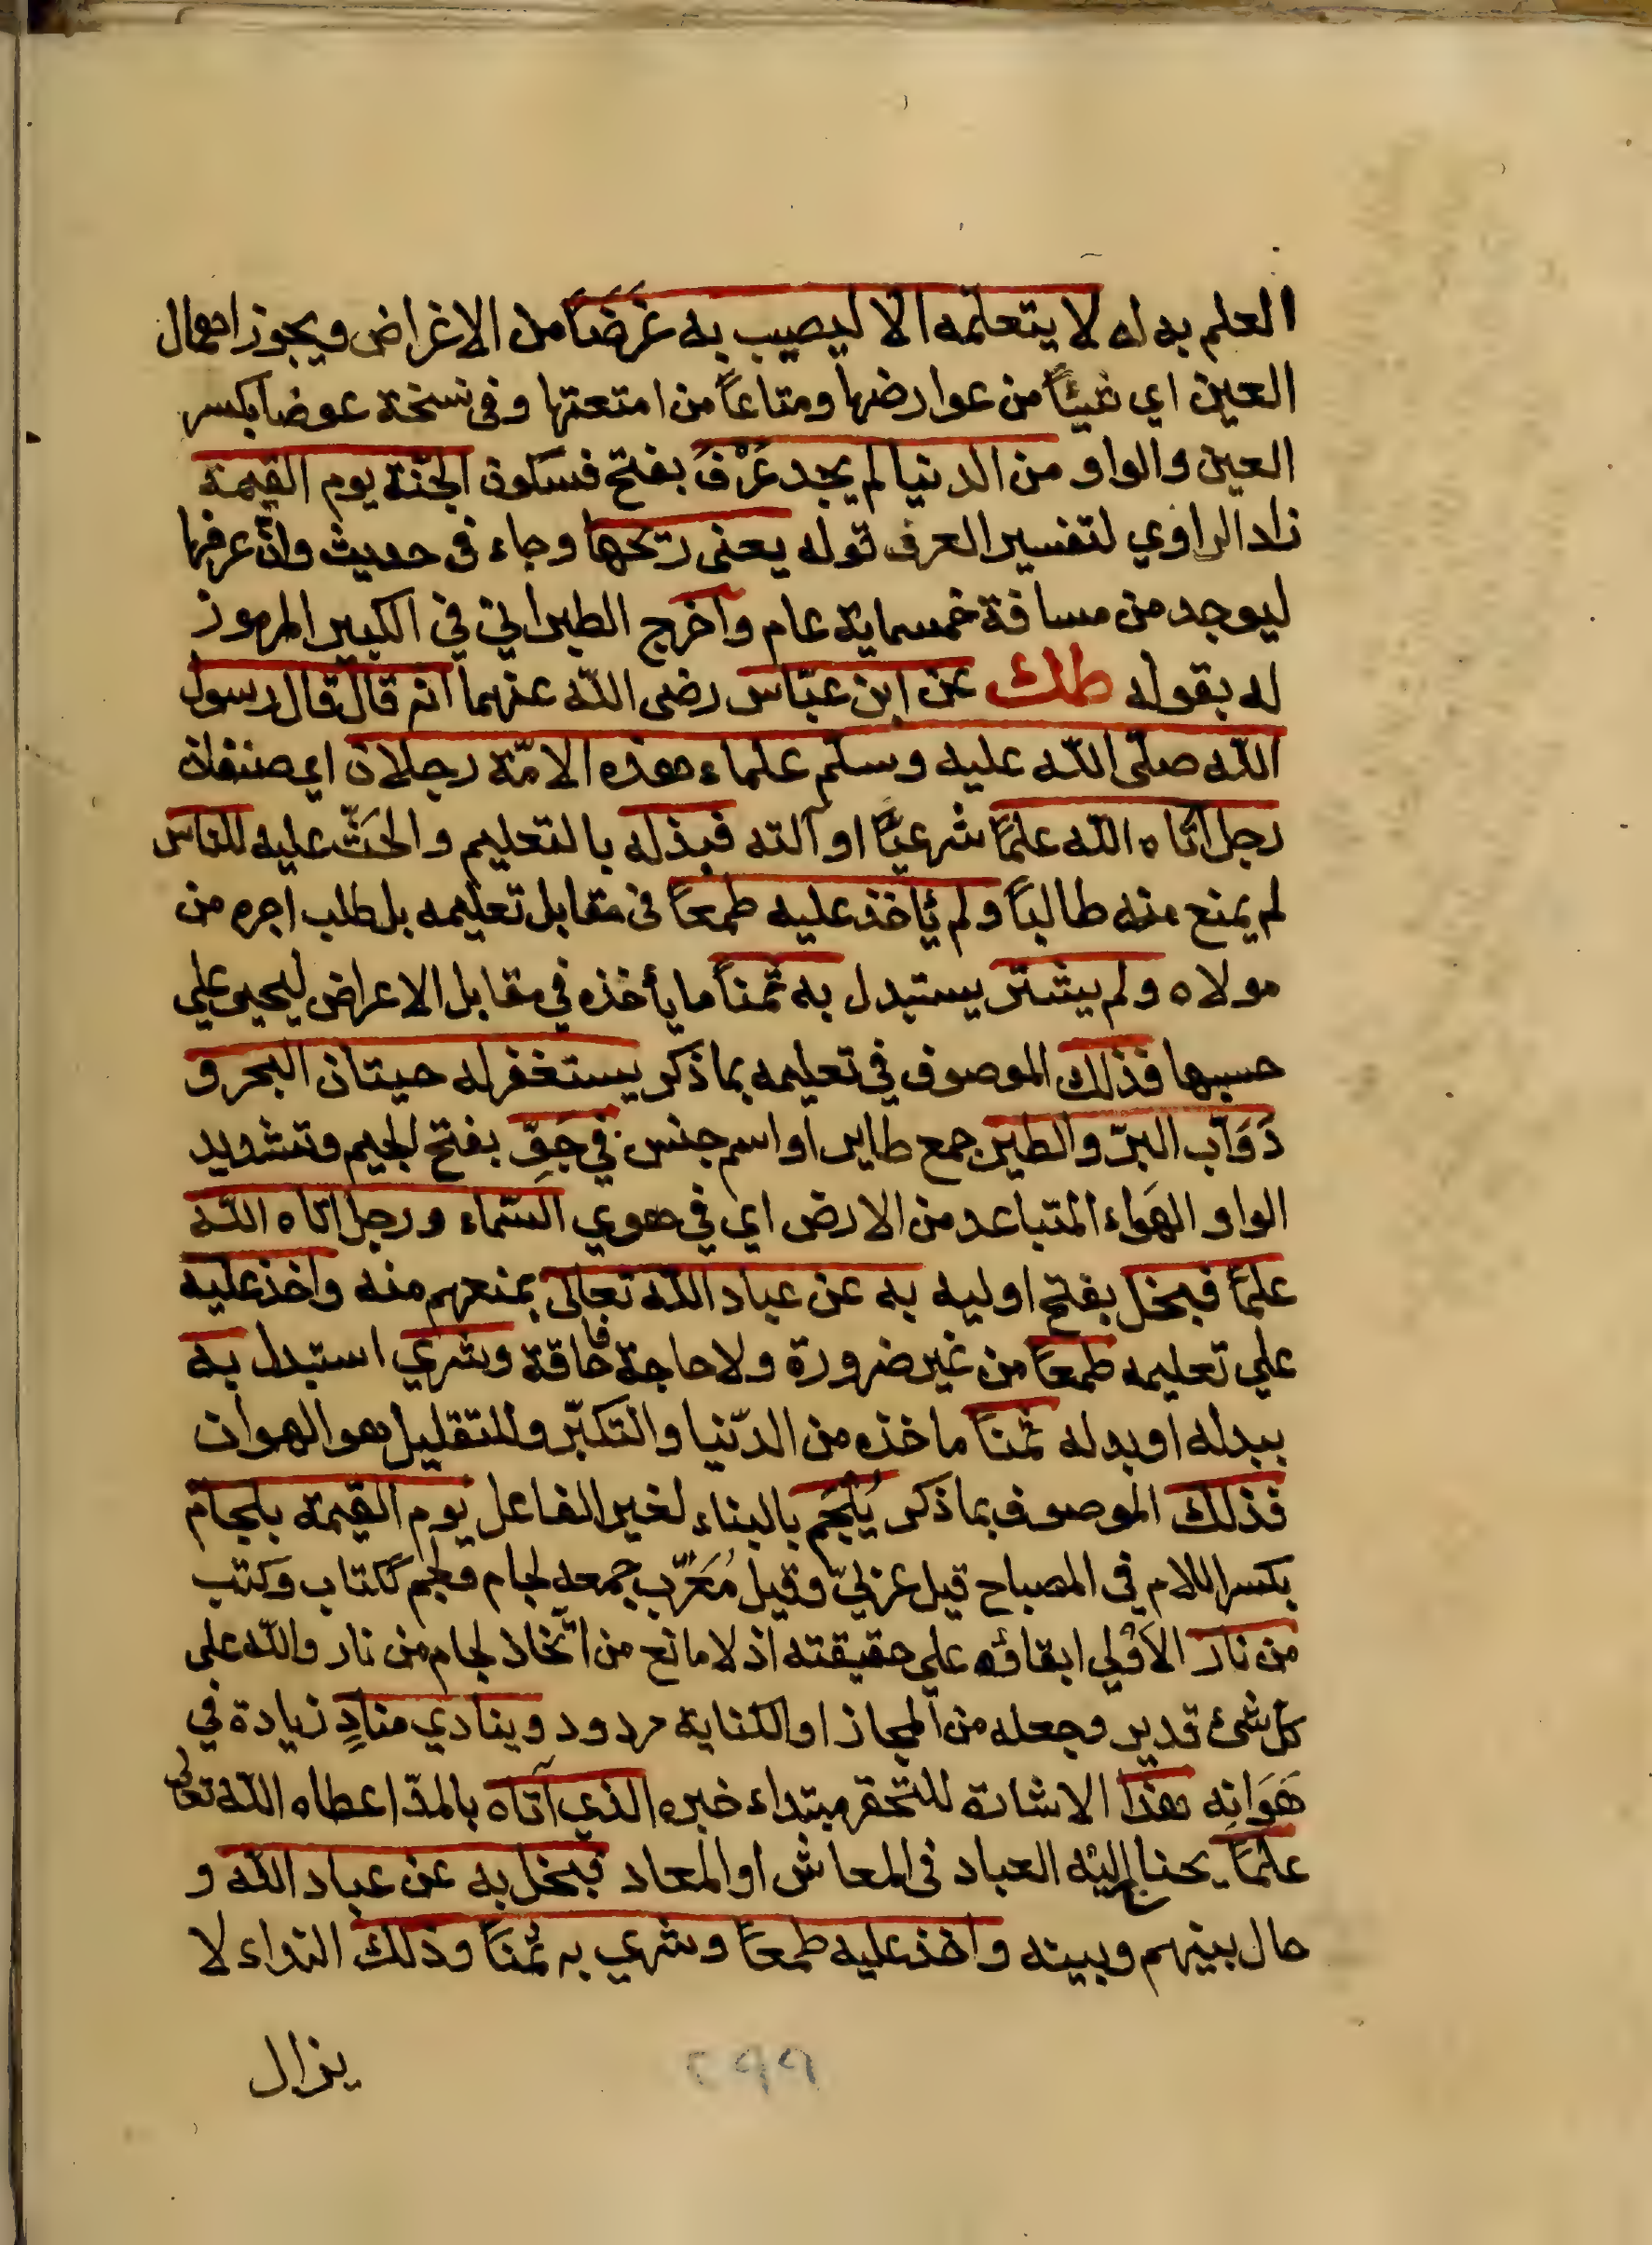 العلم به له لا يتعلمه الا ليصيب به غَرَضًا من الاغراض ويجوز اهمال
العين اي شيئًا من عوارضها ومتاعًا من امتعتها وفى نسخة عوضا بكسر
العين والواو من الدنيا لم يجد عَرْفَ بفتح فسكون الجنّة يوم القيمة
زاد الراوي لتفسير العرف قوله يعنى ريحها وجاء فى حديث وانّ عرفها
ليوجد من مسافة خمسماية عام واخرج الطبراني في الكبير المرموز
له بقوله طك عن ابن عبّاس رضى الله عنهما انه قال قال رسول
الله صلّى الله عليه وسلم علماء هذه الامّة رجلان اي صنفان
رجل اتاه الله علمًا شرعيًّا او آلته فبذله بالتعليم والحَثّ عليه للناس
لم يمنع منه طالبًا ولم يأخذ عليه طمعًا فى مقابل تعليمه بل طلب اجره من
مولاه ولم يشتر يستبدل به ثمنًا ما يأخذه في مقابل الاعراض ليحيى علي
حسبها فذلك الموصوف في تعليمه بما ذكر يستغفر له حيتان البحر و
دَوَآب البرّ والطير جمع طاير او اسم جنس في جَوِّ بفتح الجيم وتشديد
الواو الهَواء المتباعد من الارض اي في هوي السّماء ورجل اتاه الله
علمًا فبخل بفتح اوليه به عن عباد الله تعالى بمنعهم منه واخذ عليه
علي تعليمه طمعًا من غير ضرورة ولا حاجة فاقة وشري استبدل به
ببدله او بدله ثمنًا ماخذه من الدّنيا والتكبّر وللتقليل هو الهوان
فذلك الموصوف بما ذكر يُلْجَم بالبناء لغير الفاعل يوم القيمة بلجام
بكسر اللام في المصباح قيل عربيّ وقيل مُعَرّب جمعه لجام ولجم ككتاب وكتب
من نار الاَوْلي ابقاؤه علي حقيقته اذ لا مانع من اتّخاذ لجام من نار والله على
كل شئ قدير وجعله من المجاز او الكناية مردود وينادي منادٍ زيادة في
هَوَانِه هذا الاشارة للتحقر مبتداء خبره الذي آتاه بالمدّ اعطاه الله تعالى
علمًا يحتاج اليه العباد فى المعاش او المعاد فبخل به عن عباد الله و
حال بينهم وبينه واخذ عليه طمعًا وشري به ثمنًا وذلك النداء لا
يزال